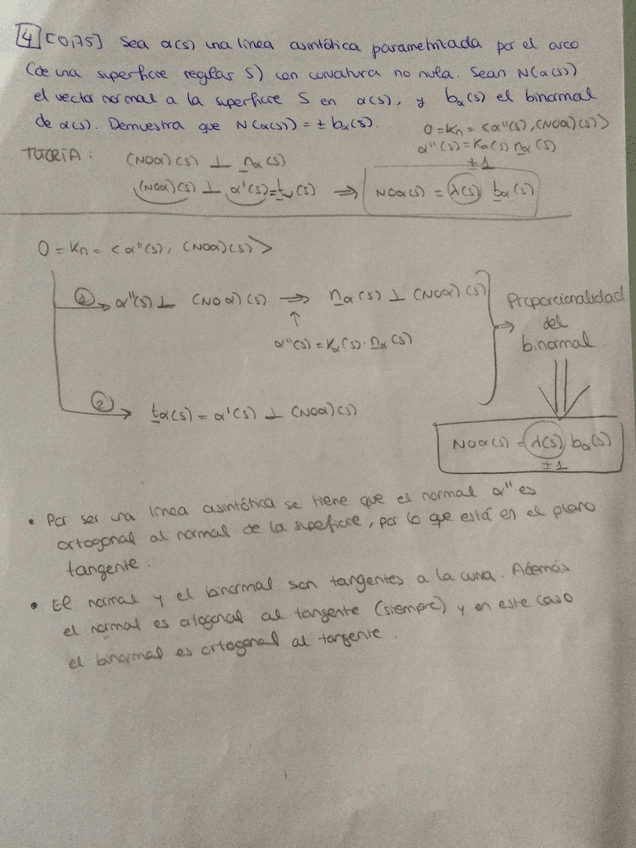 4 [0,75] Sea α(s) una línea asintótica parametrizada por el arco
(de una superficie regular S) con curvatura no nula. Sean N(α(s))
el vector normal a la superficie S en α(s), y bα(s) el binormal
de α(s). Demuestra que N(α(s)) = ± bα(s).
0 = Kn = <α''(s), (N∘α)(s)>
α''(s) = Kα(s) nα(s)
TUTORÍA: (N∘α)(s) ⊥ nα(s)
(N∘α)(s) ⊥ α'(s) = tα(s) ⟹ N∘α(s) = λ(s) bα(s)
±1
0 = Kn = <α''(s), (N∘α)(s)>
① α''(s) ⊥ (N∘α)(s) ⟹ nα(s) ⊥ (N∘α)(s)
↑
α''(s) = Kα(s) · nα(s)
② tα(s) = α'(s) ⊥ (N∘α)(s)
Proporcionalidad
del
binormal
N∘α(s) = λ(s) bα(s)
±1
• Por ser una línea asintótica se tiene que el normal α'' es
ortogonal al normal de la superficie, por lo que está en el plano
tangente.
• El normal y el binormal son tangentes a la curva. Además
el normal es ortogonal al tangente (siempre) y en este caso
el binormal es ortogonal al tangente.